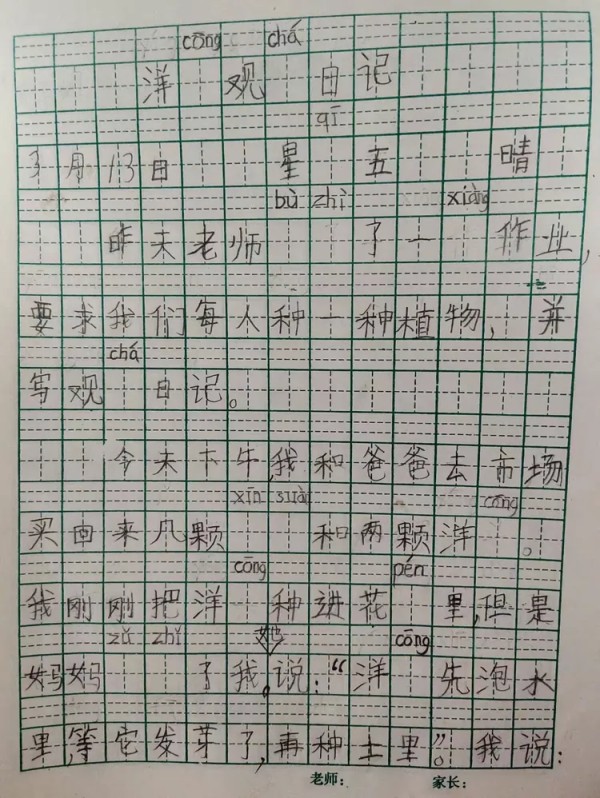 cōng chá
洋 观 日记
qī
3月13日 星 五 晴
bù zhì xiàng
昨未老师 了一 作业,
要求我们每人种一种植物, 并
chá
写观 日记。
今未下午,我和爸爸去市场
xīn suàn cōng
买由来几颗 和两颗洋 。
cōng pén
我刚刚把洋 种进花 里,但是
zǔ zhǐ 她 cōng
妈妈 了我。说:“洋 先泡水
里,等它发芽了,再种土里”。我说:
老师: 家长: